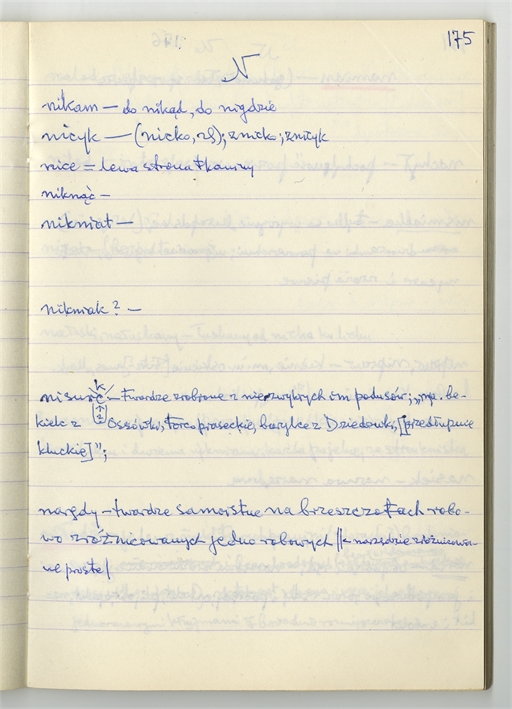 175
N
nikam — do nikąd, do nigdzie
nicyk — (nicko, rs); znicko; znicyk
nice = lewa strona tkaniny
niknąć —
nikmiat —
nikmiak? —
nisurc — twardze zrobione z niezwykłych im podusów; „np. be-
kielc z Ossówki, torco piaseckie, barylce z Dziedowki, [przedłupnie
kluckie]";
narędy — twardze samoistne na brzeszczotach robo-
wo zróżnicowanych jedno robowych /< narzędzie zróżnicowa-
ne proste/